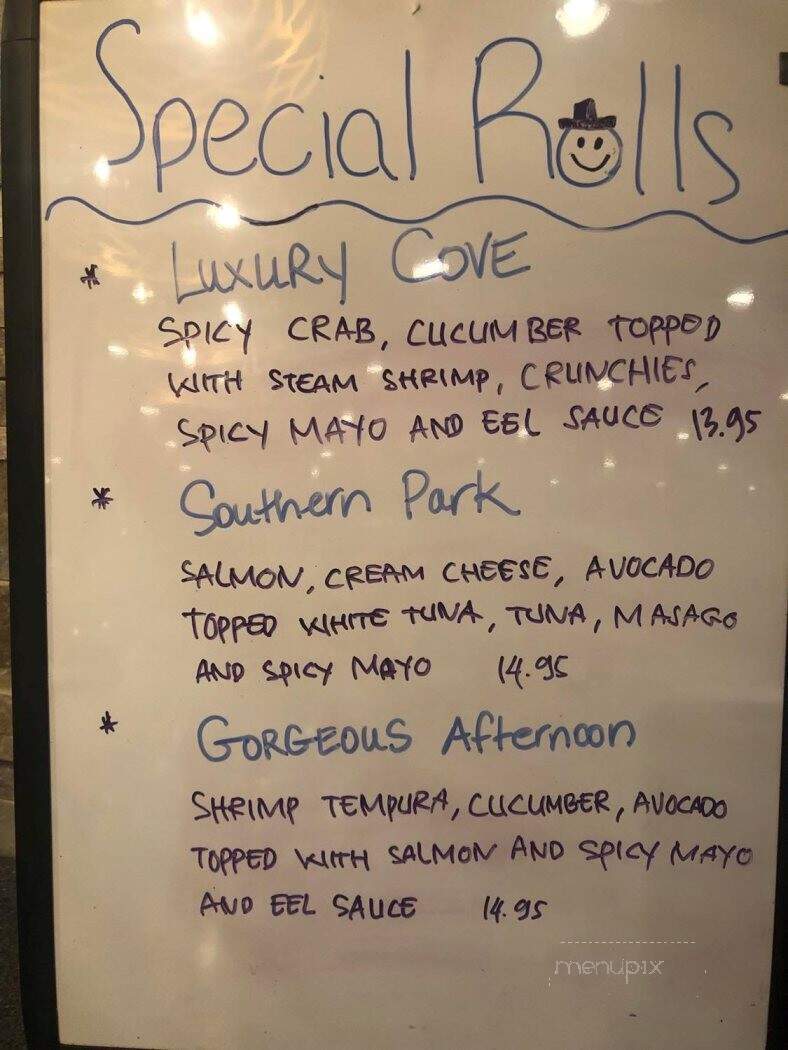 Special Rolls
* Luxury Cove
SPICY CRAB, CUCUMBER TOPPED
WITH STEAM SHRIMP, CRUNCHIES,
SPICY MAYO AND EEL SAUCE 13.95
* Southern Park
SALMON, CREAM CHEESE, AVOCADO
TOPPED WHITE TUNA, TUNA, MASAGO
AND SPICY MAYO 14.95
* GORGEOUS Afternoon
SHRIMP TEMPURA, CUCUMBER, AVOCADO
TOPPED WITH SALMON AND SPICY MAYO
AND EEL SAUCE 14.95
menupix